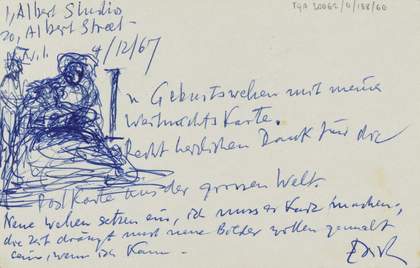 1, Albert Studio
20, Albert Street
N.W.1. 4/12/67
TGA 20062/4/188/60
In Geburtswehen mit meine
Weihnachts Karte.
Recht herzlichen Dank für die
Post Karte aus der grossen Welt.
Neue wehen setzen ein, ich muss es kurz machen,
die Zeit drängt und neue Bilder wollen gemalt
sein, wenn ich kann.